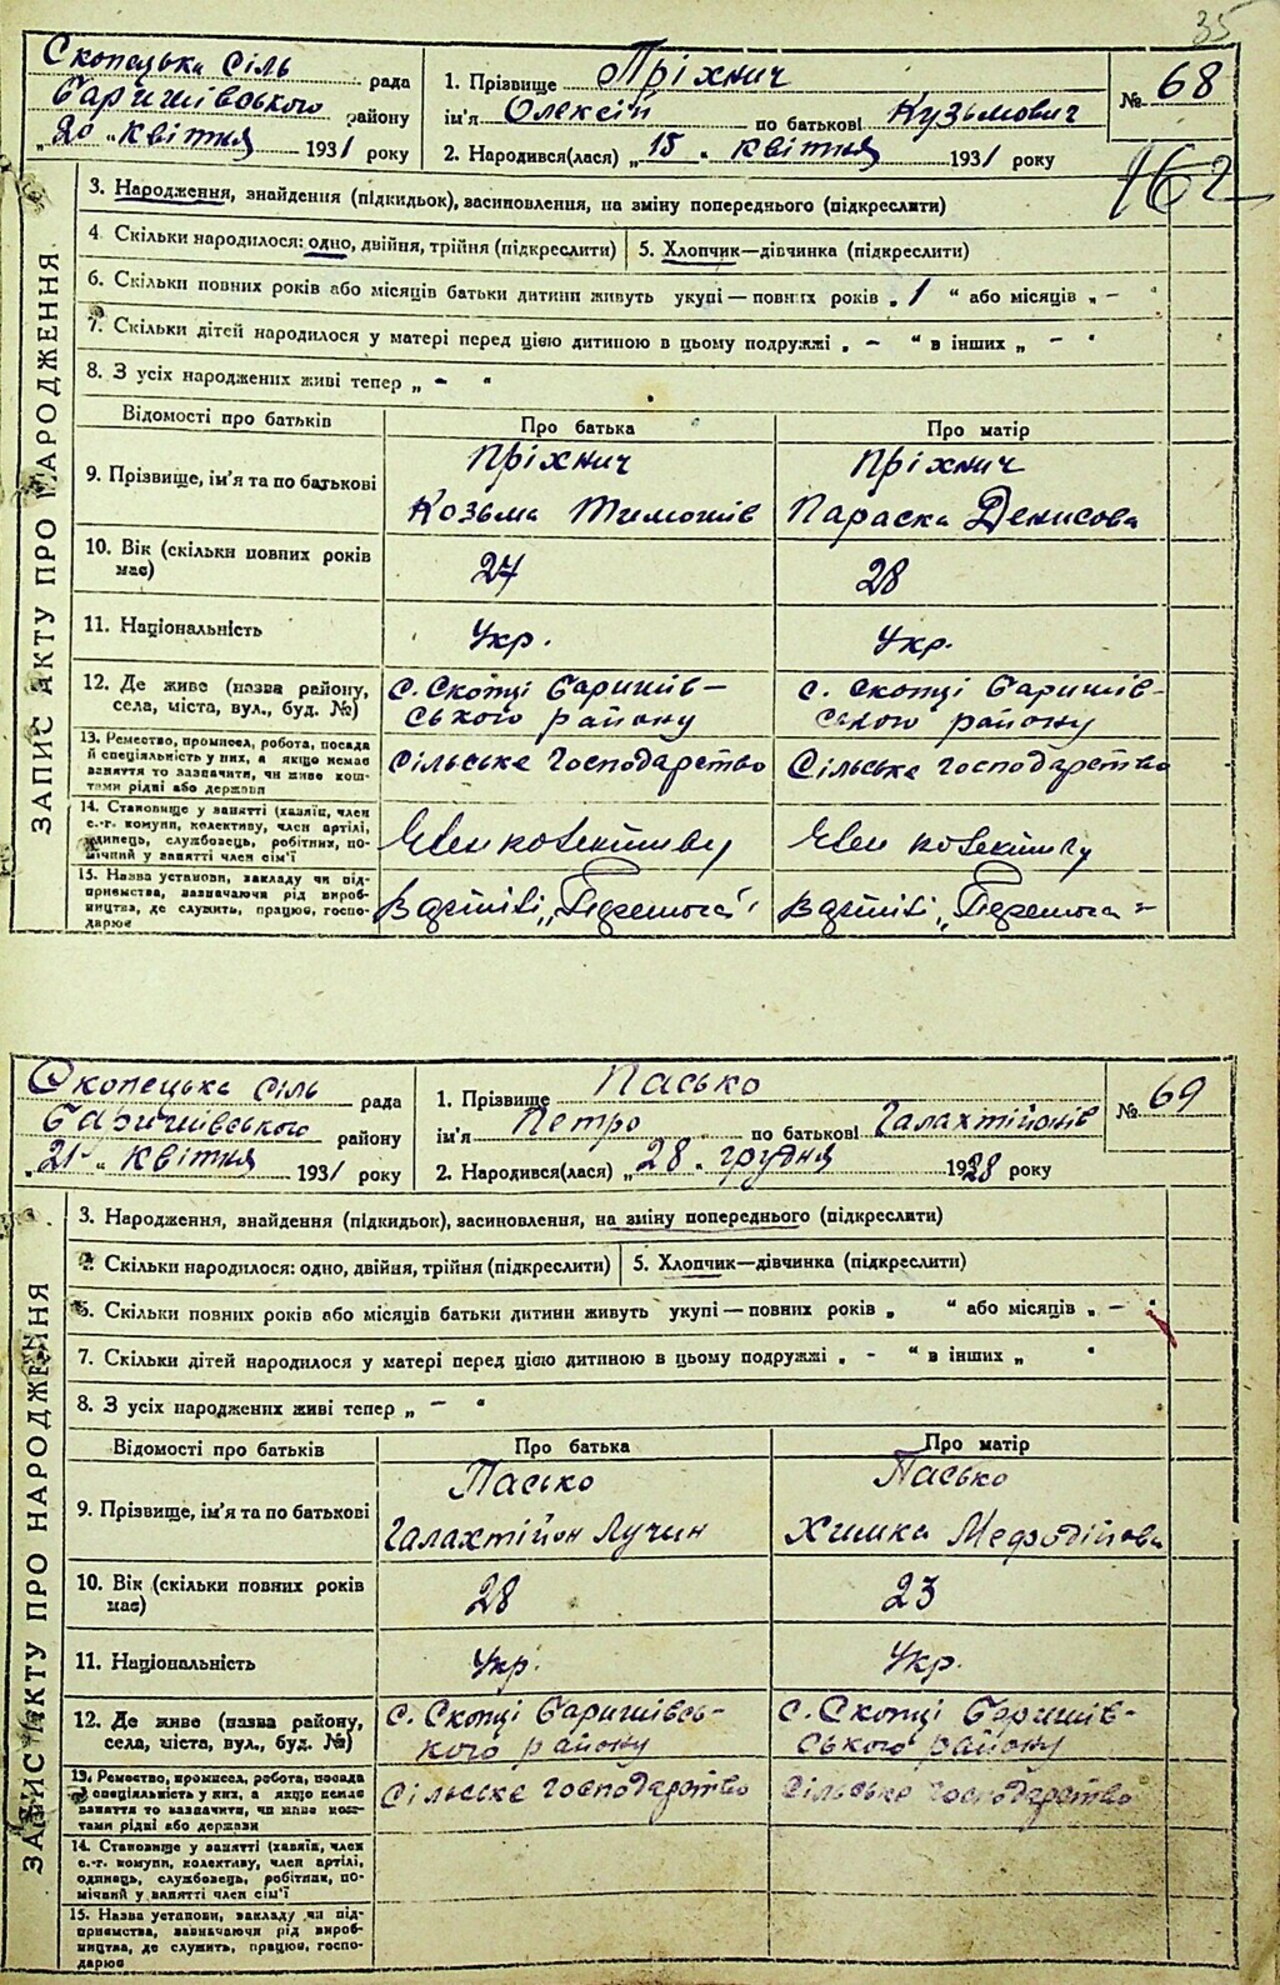 35
Скопецька сіль рада
Баришівського району
„20“ квітня 1931 року
1. Прізвище Пріхнич
ім'я Олексій по батькові Кузьмович
2. Народився(лася) „15“ квітня 1931 року
№ 68
162
ЗАПИС АКТУ ПРО НАРОДЖЕННЯ
3. Народження, знайдення (підкидьок), засиновлення, на зміну попереднього (підкреслити)
4. Скільки народилося: одно, двійня, трійня (підкреслити) 5. Хлопчик—дівчинка (підкреслити)
6. Скільки повних років або місяців батьки дитини живуть укупі — повних років „1“ або місяців „-“
7. Скільки дітей народилося у матері перед цією дитиною в цьому подружжі „-“ в інших „-“
8. З усіх народжених живі тепер „-“
Відомості про батьків Про батька Про матір
9. Прізвище, ім'я та по батькові Пріхнич Козьма Тимошів Пріхнич Параска Денисова
10. Вік (скільки повних років має) 27 28
11. Національність Укр. Укр.
12. Де живе (назва району, села, міста, вул., буд. №) с. Скопці Баришівського району с. Скопці Баришівського району
13. Ремество, промисел, робота, посада й спеціяльність у них, а якщо немає заняття то зазначити, чи живе коштами рідні або держави Сільське господарство Сільське господарство
14. Становище у занятті (хазяїн, член с.-г. комуни, колективу, член артілі, одинець, службовець, робітник, помічний у занятті член сім'ї Член колективу Член колективу
15. Назва установи, закладу чи підприємства, зазначаючи рід виробництва, де служить, працює, господарює В артілі „Перемога“ В артілі „Перемога“
Скопецька сіль рада
Баришівського району
„21“ квітня 1931 року
1. Прізвище Пасько
ім'я Петро по батькові Галахтійонів
2. Народився(лася) „28“ грудня 1928 року
№ 69
ЗАПИС АКТУ ПРО НАРОДЖЕННЯ
3. Народження, знайдення (підкидьок), засиновлення, на зміну попереднього (підкреслити)
4. Скільки народилося: одно, двійня, трійня (підкреслити) 5. Хлопчик—дівчинка (підкреслити)
6. Скільки повних років або місяців батьки дитини живуть укупі — повних років „ “ або місяців „-“
7. Скільки дітей народилося у матері перед цією дитиною в цьому подружжі „-“ в інших „ “
8. З усіх народжених живі тепер „-“
Відомості про батьків Про батька Про матір
9. Прізвище, ім'я та по батькові Пасько Галахтійон Лучин Пасько Химка Мефодійова
10. Вік (скільки повних років має) 28 23
11. Національність Укр. Укр.
12. Де живе (назва району, села, міста, вул., буд. №) с. Скопці Баришівського району с. Скопці Баришівського району
13. Ремество, промисел, робота, посада й спеціяльність у них, а якщо немає заняття то зазначити, чи живе коштами рідні або держави Сільске господарство Сільське господарство
14. Становище у занятті (хазяїн, член с.-г. комуни, колективу, член артілі, одинець, службовець, робітник, помічний у занятті член сім'ї
15. Назва установи, закладу чи підприємства, зазначаючи рід виробництва, де служить, працює, господарює